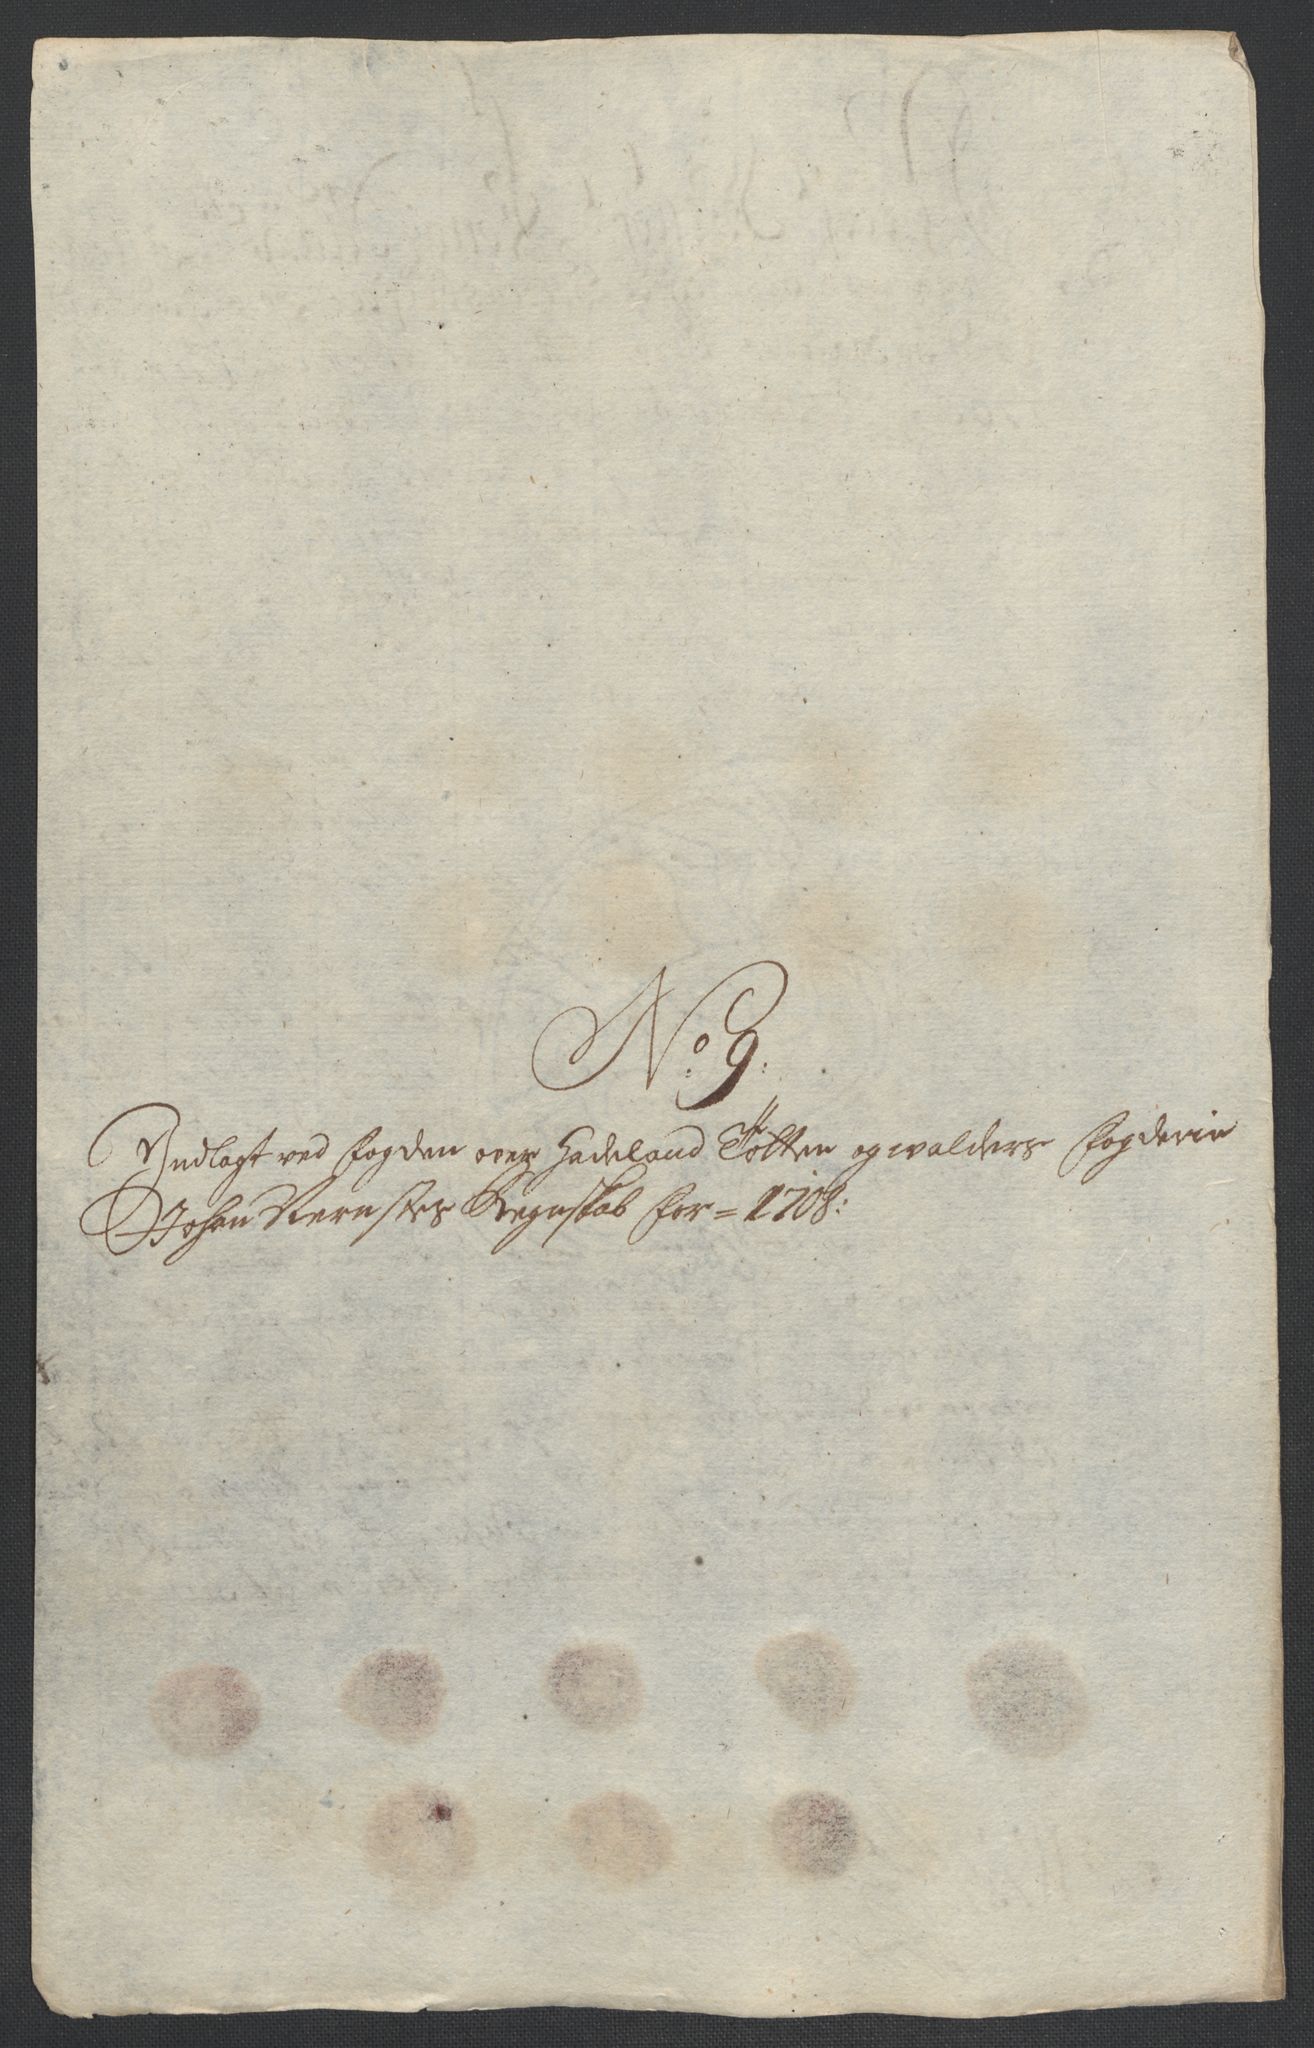 No: 9:
Indlagt ved fogden over Hadeland Totten og walders fogderie
Johan Nernstes Regnskab for = 1708: